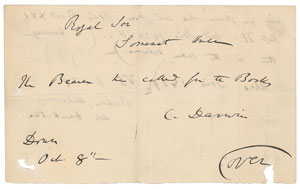 Royal Soc
Somerset House
The Bearer to call for the Books
C. Darwin
Down
Oct. 8th
(over)